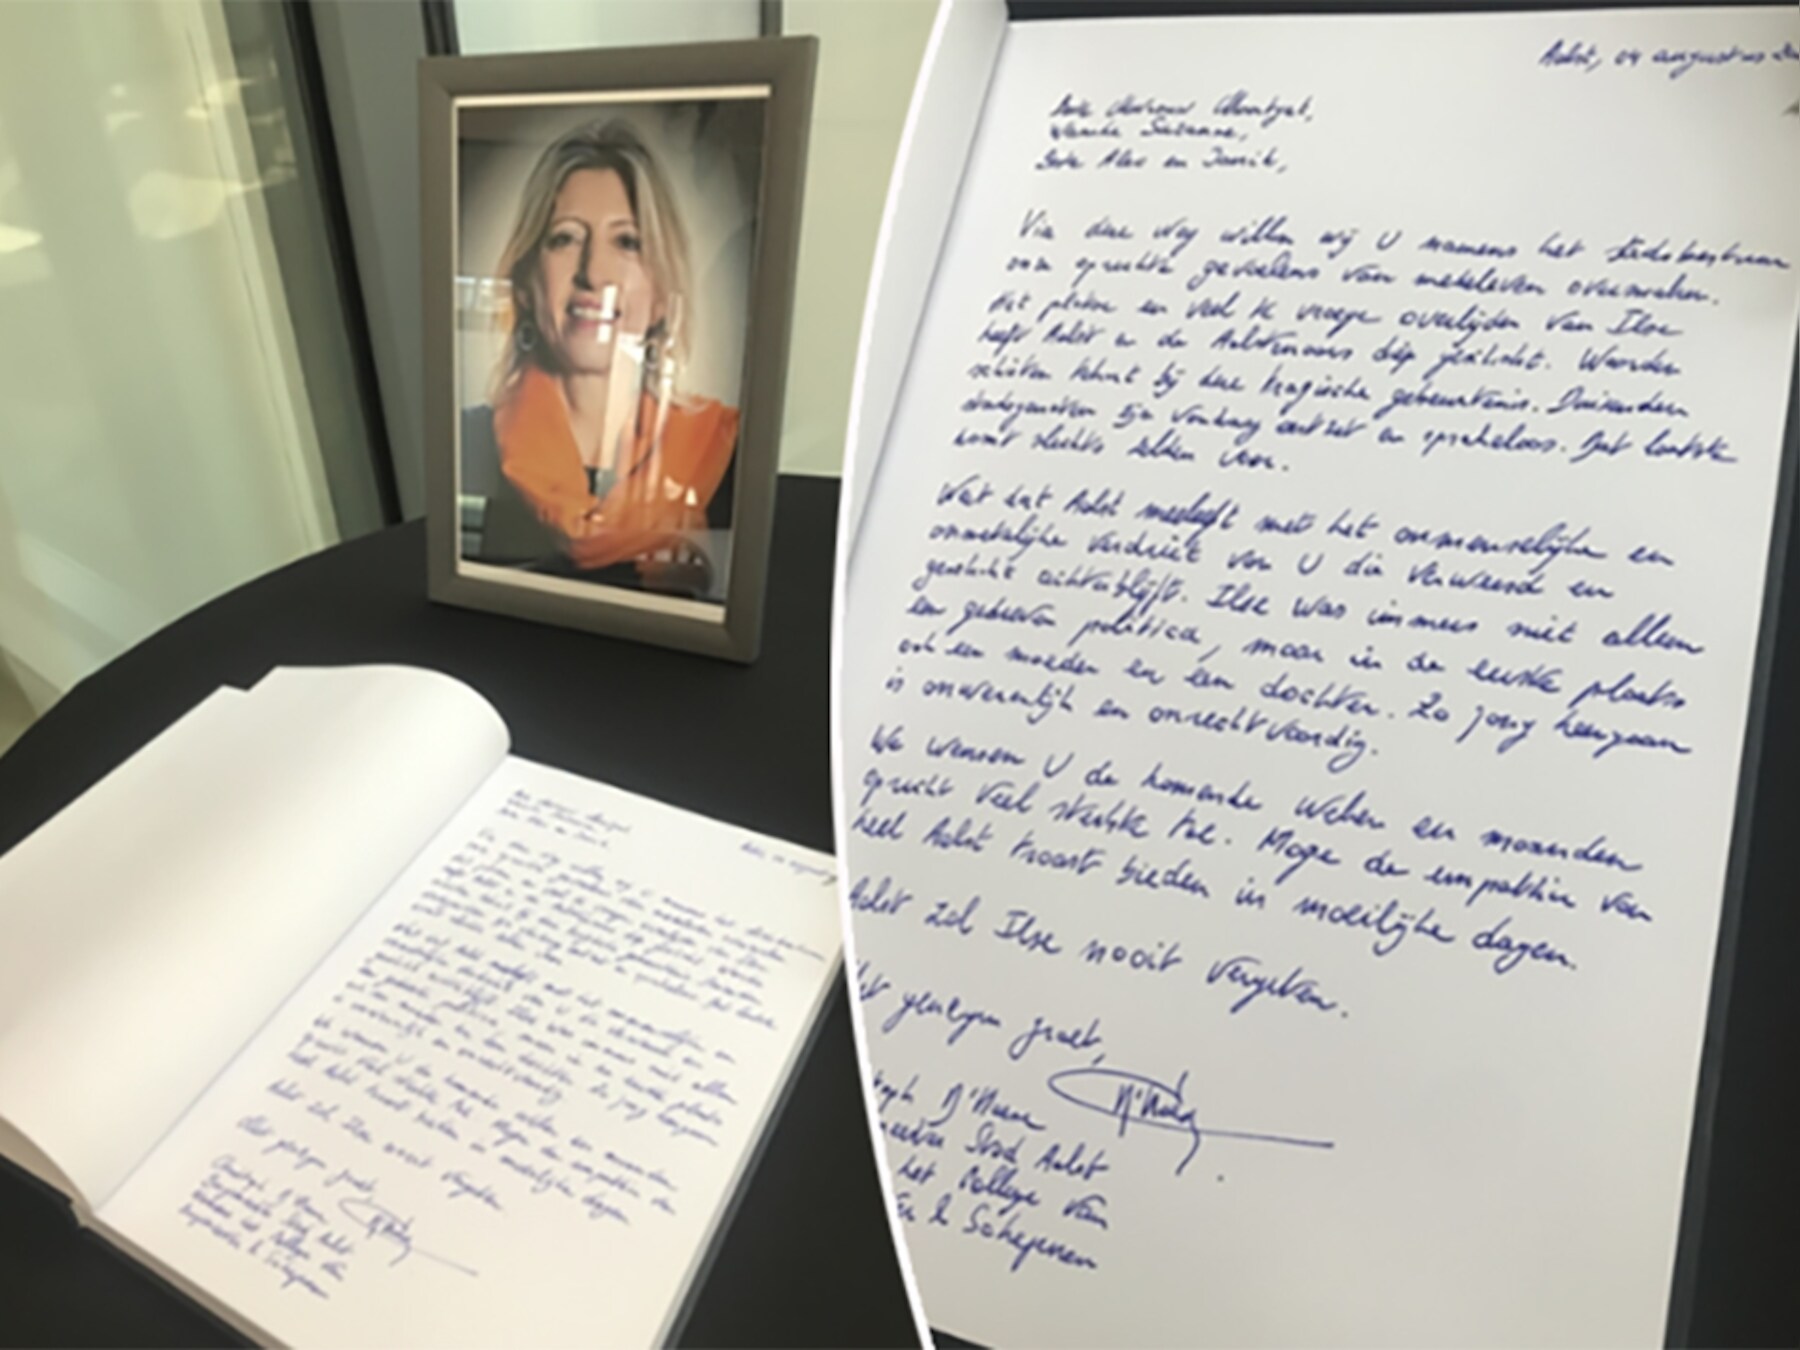 Aalst, 04 augustus
Beste Mevrouw
Waarde Suzanne,
Beste Alex en Janik,
Via deze weg willen wij U namens het stadsbestuur
onze oprechte gevoelens van medeleven overmaken.
Het plotse en veel te vroege overlijden van Ilse
heeft Aalst en de Aalstenaars diep geschokt. Woorden
schieten tekort bij deze tragische gebeurtenis. Duizenden
stadsgenoten zijn vandaag ontzet en sprakeloos. Dat laatste
komt slechts zelden voor.
Weet dat Aalst meeleeft met het onmenselijke en
onmetelijke verdriet van U die verweesd en
geschokt achterblijft. Ilse was immers niet alleen
een gedreven politica, maar in de eerste plaats
ook een moeder en een dochter. Zo jong heengaan
is onwezenlijk en onrechtvaardig.
We wensen U de komende weken en maanden
oprecht veel sterkte toe. Moge de empathie van
heel Aalst troost bieden in moeilijke dagen.
Aalst zal Ilse nooit vergeten.
Met genegen groet,
D'Haese
Stad Aalst
het College van
& Schepenen